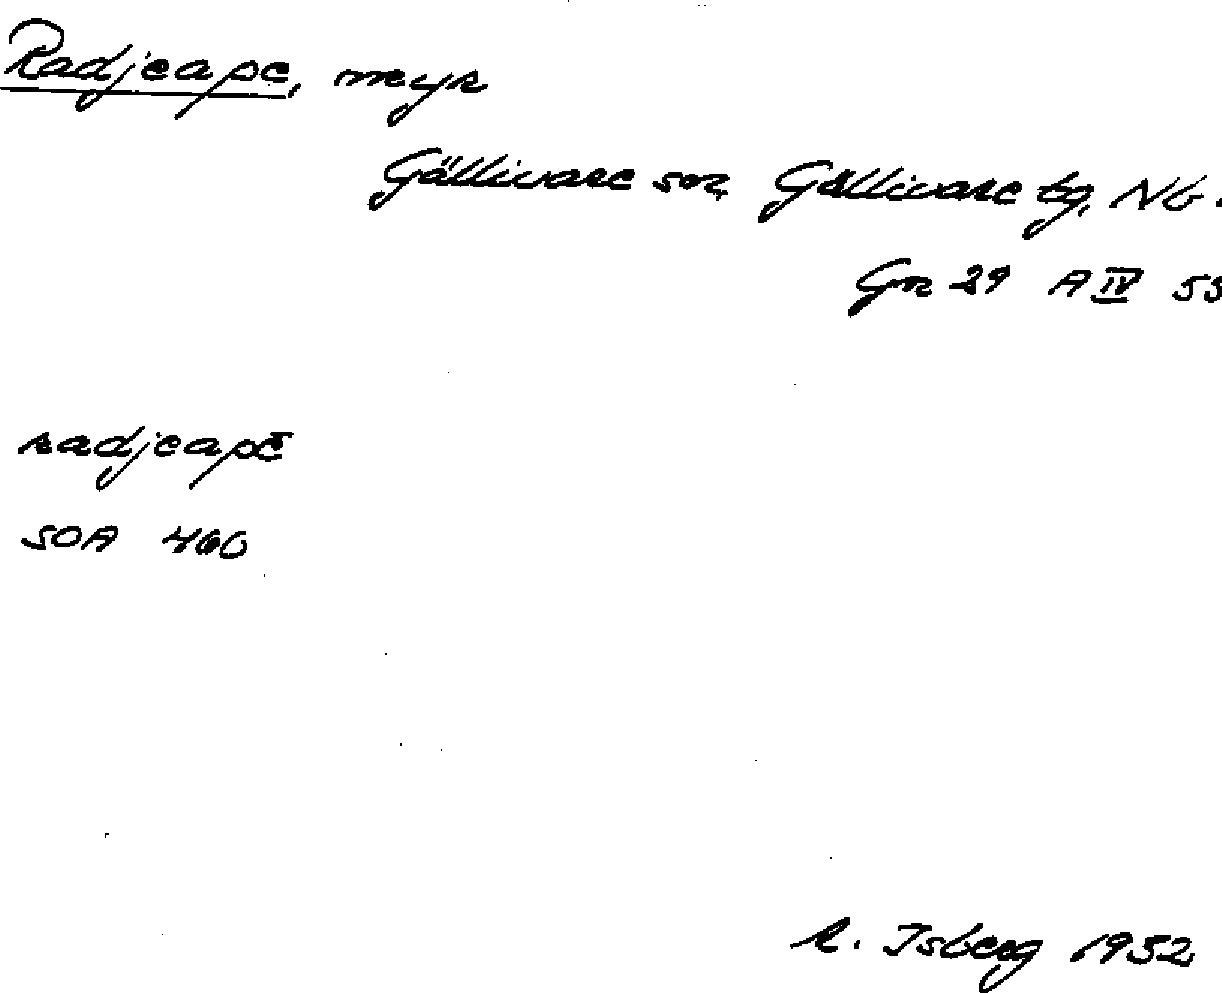 Radjeape, myr
Gällivare sn, Gällivare tg, Nb.
Gn 29 A IV 53
radjeapē
SOA 460
R. Isberg 1952